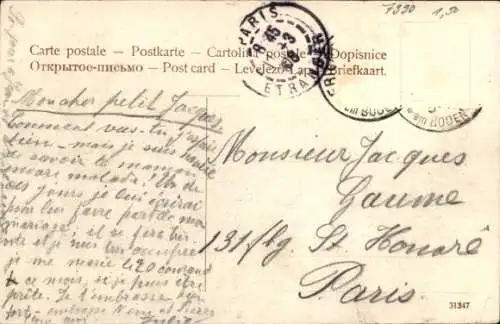 7390 1,50
Carte postale – Postkarte – Cartolina postale – Dopisnice
Открытое-письмо – Post card – Levelező-Lap – Briefkaart.
PARIS
ETRANGER
BODEN
Mon cher petit Jacques
Comment vas-tu, j'espère
bien – mais je suis navrée
de savoir ta maman
encore malade! Un de
ces jours je lui écrirai
pour lui faire part de mon
mariage, il se fera bien
je me marie le 20 courant
ce mois, si je puis être
prête. Je t'embrasse bien
fort
Monsieur Jacques
Gaume
131 fbg. St. Honoré
Paris
31347